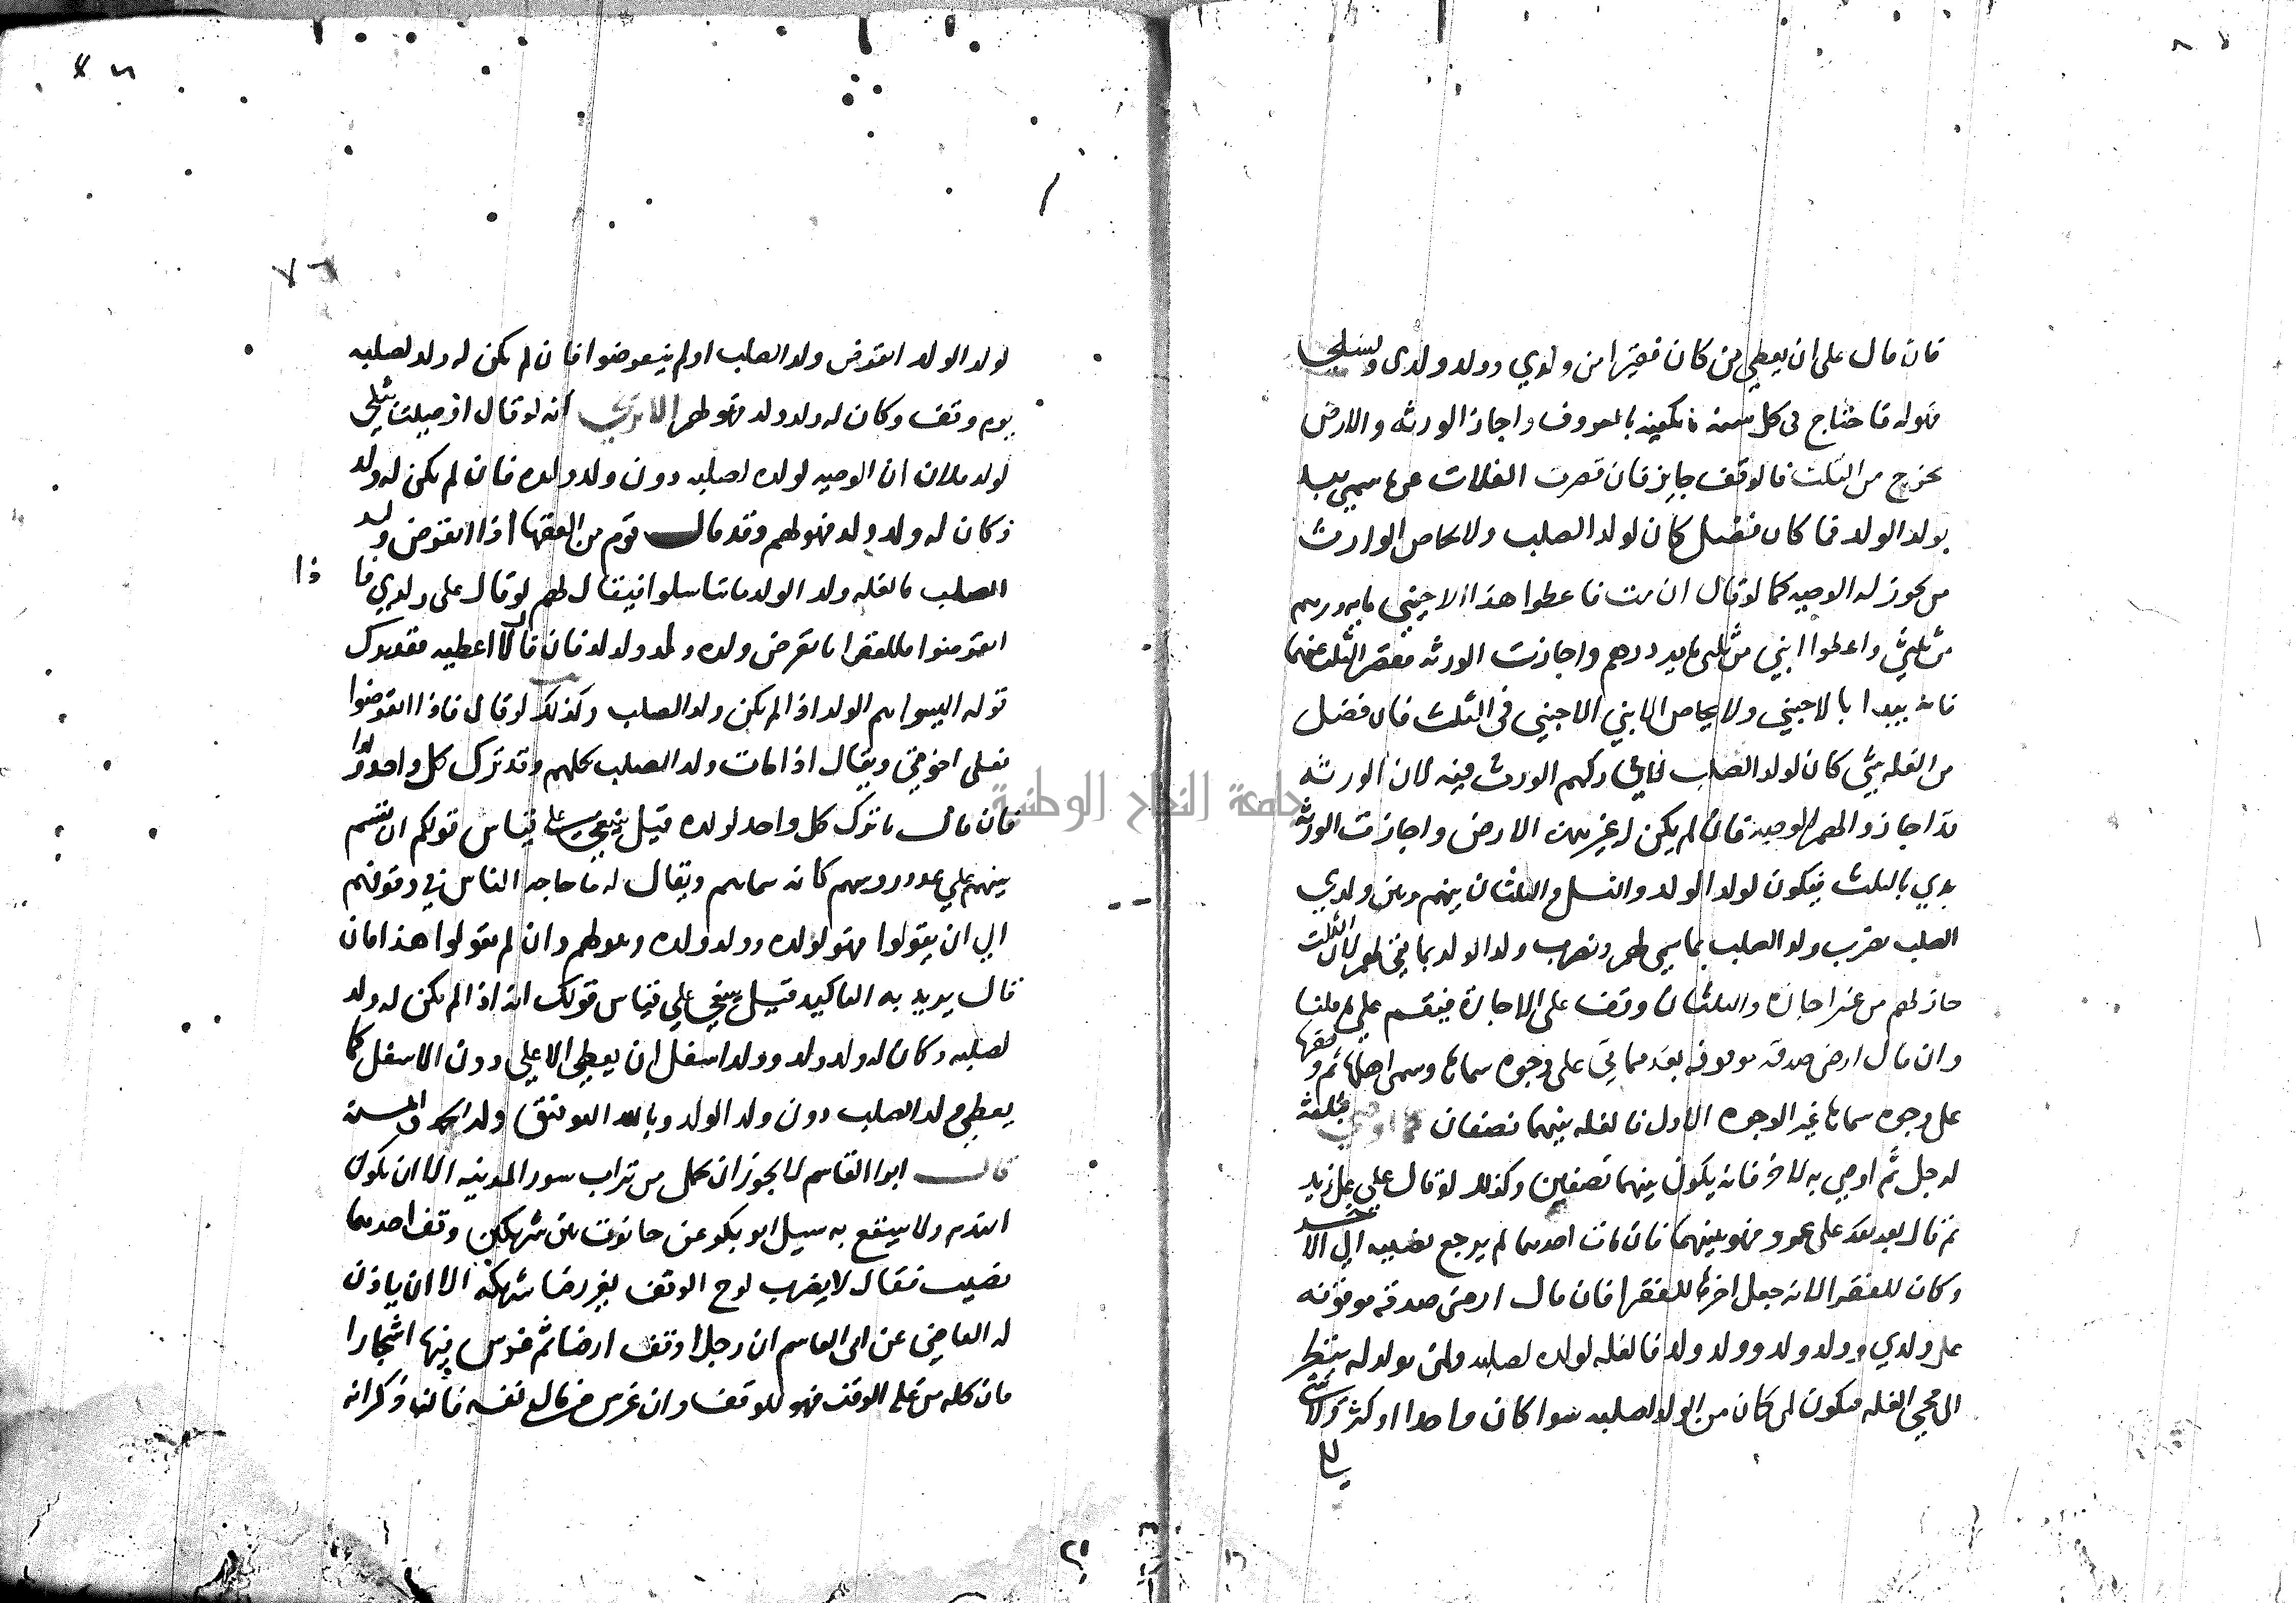 فان قال على ان يعطي من كان فقيرا من ولدي وولد ولدي ونسلي
فهوله ما احتاج في كل سنة ما يكفيه بالمعروف واجاز الورثه والارض
تخرج من الثلث فالوقف جايز فان قصرت الغلات عن ما سمى يبدا
بولد الولد فما كان فضل كان لولد الصلب ولا يحاص الوارث
من يجوز له الوصيه كما لو قال ان مت فاعطوا هذا الاجنبي مايه درهم
من ثلثي واعطوا ابني من ثلثي مايه درهم واجازت الورثه فقصر الثلث عنهما
فانه يبدا بالاجنبي ولا يحاص الابن الاجنبي في الثلث فان فضل
من الغله شي كان لولد الصلب لا يشاركهم الورث فيه لان الورثه
قد اجازوا لهم الوصيه فان لم يكن له غير هذه الارض واجازت الورثه
بدي بالثلث فيكون لولد الولد والنسل والثلثان بينهم وبين ولدي
الصلب يضرب ولد الصلب بما سمى لهم ويضرب ولد الولد بما بقي لهم لان الثلث
جاز لهم من غير اجازه والثلثان وقف على الاجازة فيقسم على ما قلنا
وان قال ارض صدقه موقوفه بعد مماتي على وجوه سماها وسمى اصلها ثم وقفها
على وجوه سماها غير الوجوه الاول فالغله بينهما نصفان اوصى بثلثه
لرجل ثم اوصى به لاخر فانه يكون بينهما نصفين وكذلك لو قال على زيد
ثم قال بعد بعد على عمرو فهو بينهما فان مات احدهما لم يرجع نصيبه الى الاخر
وكان للفقرا لانه جعل اخرها للفقرا فان قال ارضي صدقه موقوفه
على ولدي وولد ولد وولد ولد فالغله لولده لصلبه ولمن يولد له ينظر
الى مجي الغله فيكون لمن كان من الولد لصلبه سوا كان واحدا او كثر ولا شي
٧٦
لولد الولد انقرض ولد الصلب او لم ينقرضوا فان لم يكن له ولد لصلبه
يوم وقف وكان له ولد ولد فهو لهم الا ترى انه لو قال اوصيت بثلثي
لولد فلان ان الوصيه لولده لصلبه دون ولد ولده فان لم يكن له ولد
وكان له ولد ولد فهو لهم وقد قال قوم من الفقها اذا انقرض ولد
الصلب فالغله ولد الولد ما تناسلوا فيقال لهم لو قال على ولدي فا ذا
انقرضوا فللفقرا فانقرض ولده وله ولد ولد فان قال لا اعطيه فقد ترك
قوله اليسوا هم الولد اذا لم يكن ولد الصلب وكذلك لو قال فاذا انقرضوا
فعلى اخوتي ويقال اذا مات ولد الصلب كلهم وقد ترك كل واحد ولدا
فان قال ما ترك كل واحد لولده قيل ينبغي على قياس قولكم ان تقسم
بينهم على عدد روسهم كانه سماهم ويقال له ما حاجه الناس في وقوفهم
الى ان يقولوا فهو لولده وولد ولده وهو لهم وان لم يقولوا هذا فان
قال يريد به التاكيد قيل ينبغي على قياس قولك انه اذا لم يكن له ولد
لصلبه وكان له ولد ولد وولد اسفل ان يعطى الاعلى دون الاسفل كما
يعطى ولد الصلب دون ولد الولد وبالله التوفيق ولد الحمد والمنه
قال ابوا القاسم لا يجوز ان يحمل من تراب سور المدينه الا ان يكون
انهدم ولا ينتفع به سيل ابو بكر عن حانوت بين شريكين وقف احدهما
نصيبه فقال لا يضرب لوح الوقف بغير رضا شريكه الا ان ياذن
له القاضي عن ابي القاسم ان رجلا اوقف ارضا ثم غرس فيها اشجارا
فان كله من غلة الوقف فهو للوقف وان غرس من مال نفسه فان ذكر انه
جامعة النجاح الوطنية